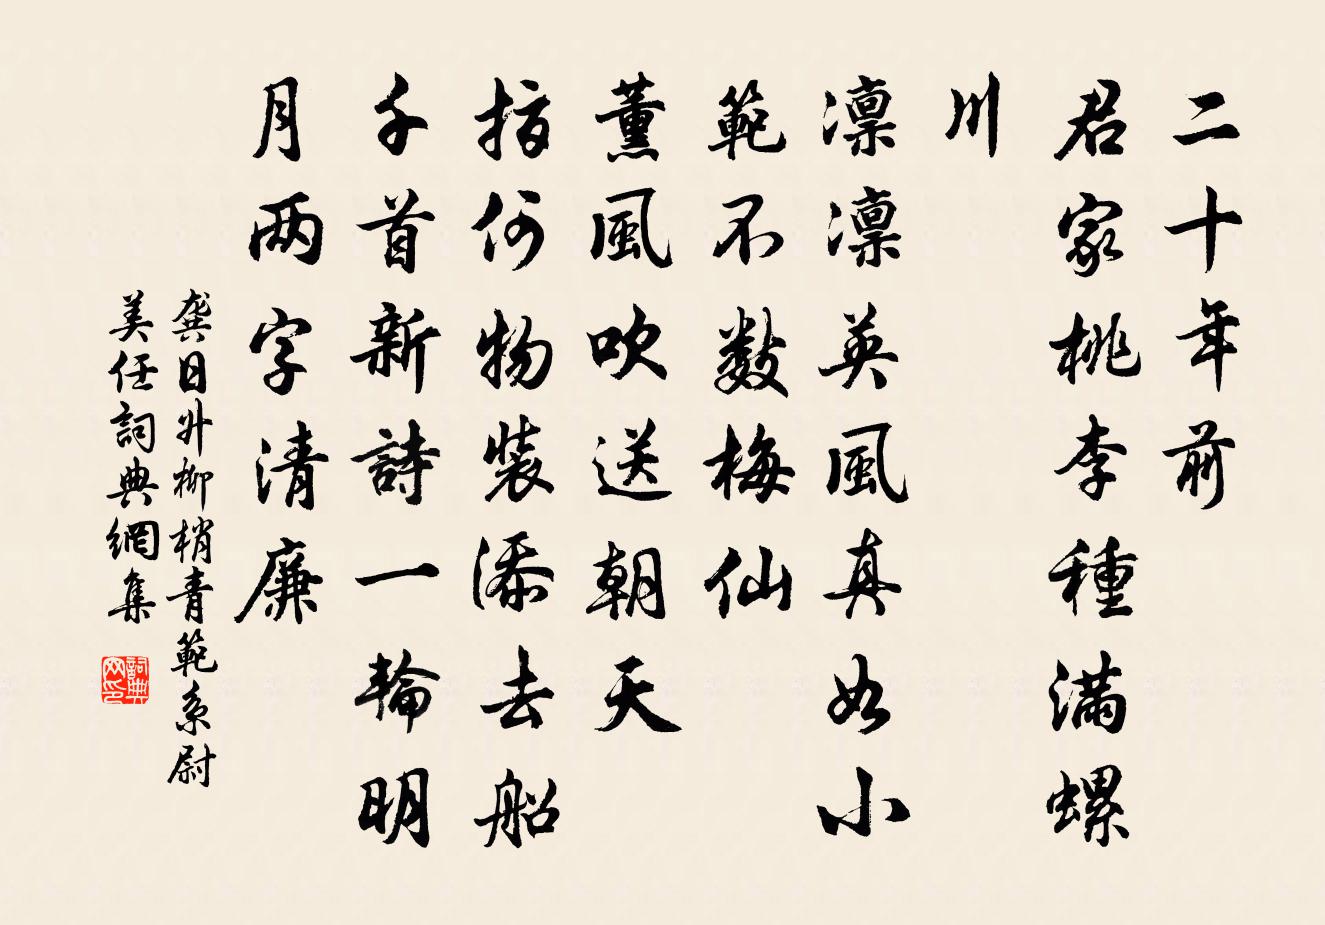 二十年前
君家桃李種滿螺
川
凛凛英風真如小
範不數梅仙
薰風吹送朝天
指何物裝添去船
千首新詩一輪明
月兩字清廉
龔日升柳梢青範系尉
美任詞典網集
詞典网印